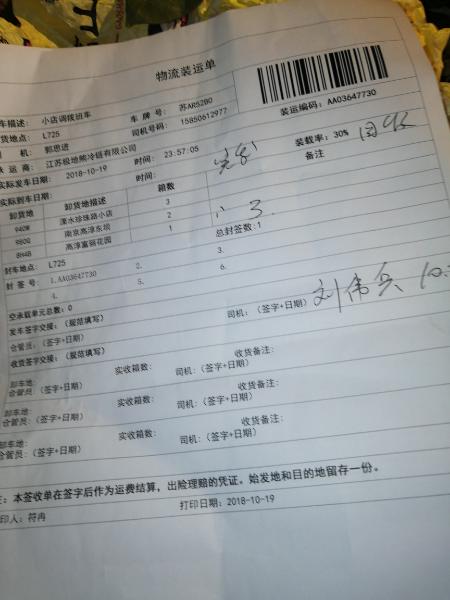 物流装运单
车描述： 小店调拨班车
车 牌 号： 苏AR52B0
装运编码： AA03647730
货地点： L725
司机号码： 15850612977
机 郭思进
装载率： 30% 回收
运 商： 江苏极地熊冷链有限公司
备注
实际发车日期： 2018-10-19 时间： 23:57:05
实际到车日期： 时间：
卸货地 卸货地描述 箱数
940W 溧水珍珠路小店 3
980G 南京高淳东坝 2
8H4B 高淳富丽花园 1
总封签数：1
封车地点： L725
封 签 号： 1.AA03647730 2. 3.
4. 5. 6.
空承载单元总数：0
发车签字交接：（规范填写）
仓管员：（签字+日期） 司机：（签字+日期） 刘伟兵
收货签字交接：（规范填写）
卸车地： 实收箱数： 收货备注：
仓管员：（签字+日期） 司机：（签字+日期）
卸车地： 实收箱数： 收货备注：
仓管员：（签字+日期） 司机：（签字+日期）
卸车地： 实收箱数： 收货备注：
仓管员：（签字+日期） 司机：（签字+日期）
注：本签收单在签字后作为运费结算，出险理赔的凭证。始发地和目的地留存一份。
印人：符冉 打印日期：2018-10-19